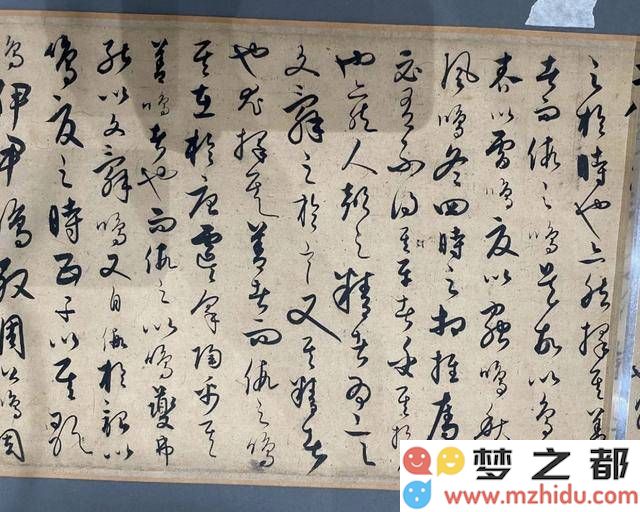 之於時也亦然擇其善
者而假之鳴是故以鳥
春以雷鳴夏以蟲鳴秋
風鳴冬四時之相推奪
必有不得其平者乎其於
也亦然人聲之精者為言
文辭之於言又其精者
也尤擇其善者而假之鳴
其在於唐虞咎陶禹其
善鳴者也而假之以鳴夔弗
能以文辭鳴又自假於韶以
鳴夏之時五子以其歌
鳴伊尹鳴殷周公鳴周
梦之都
www.mzhidu.com